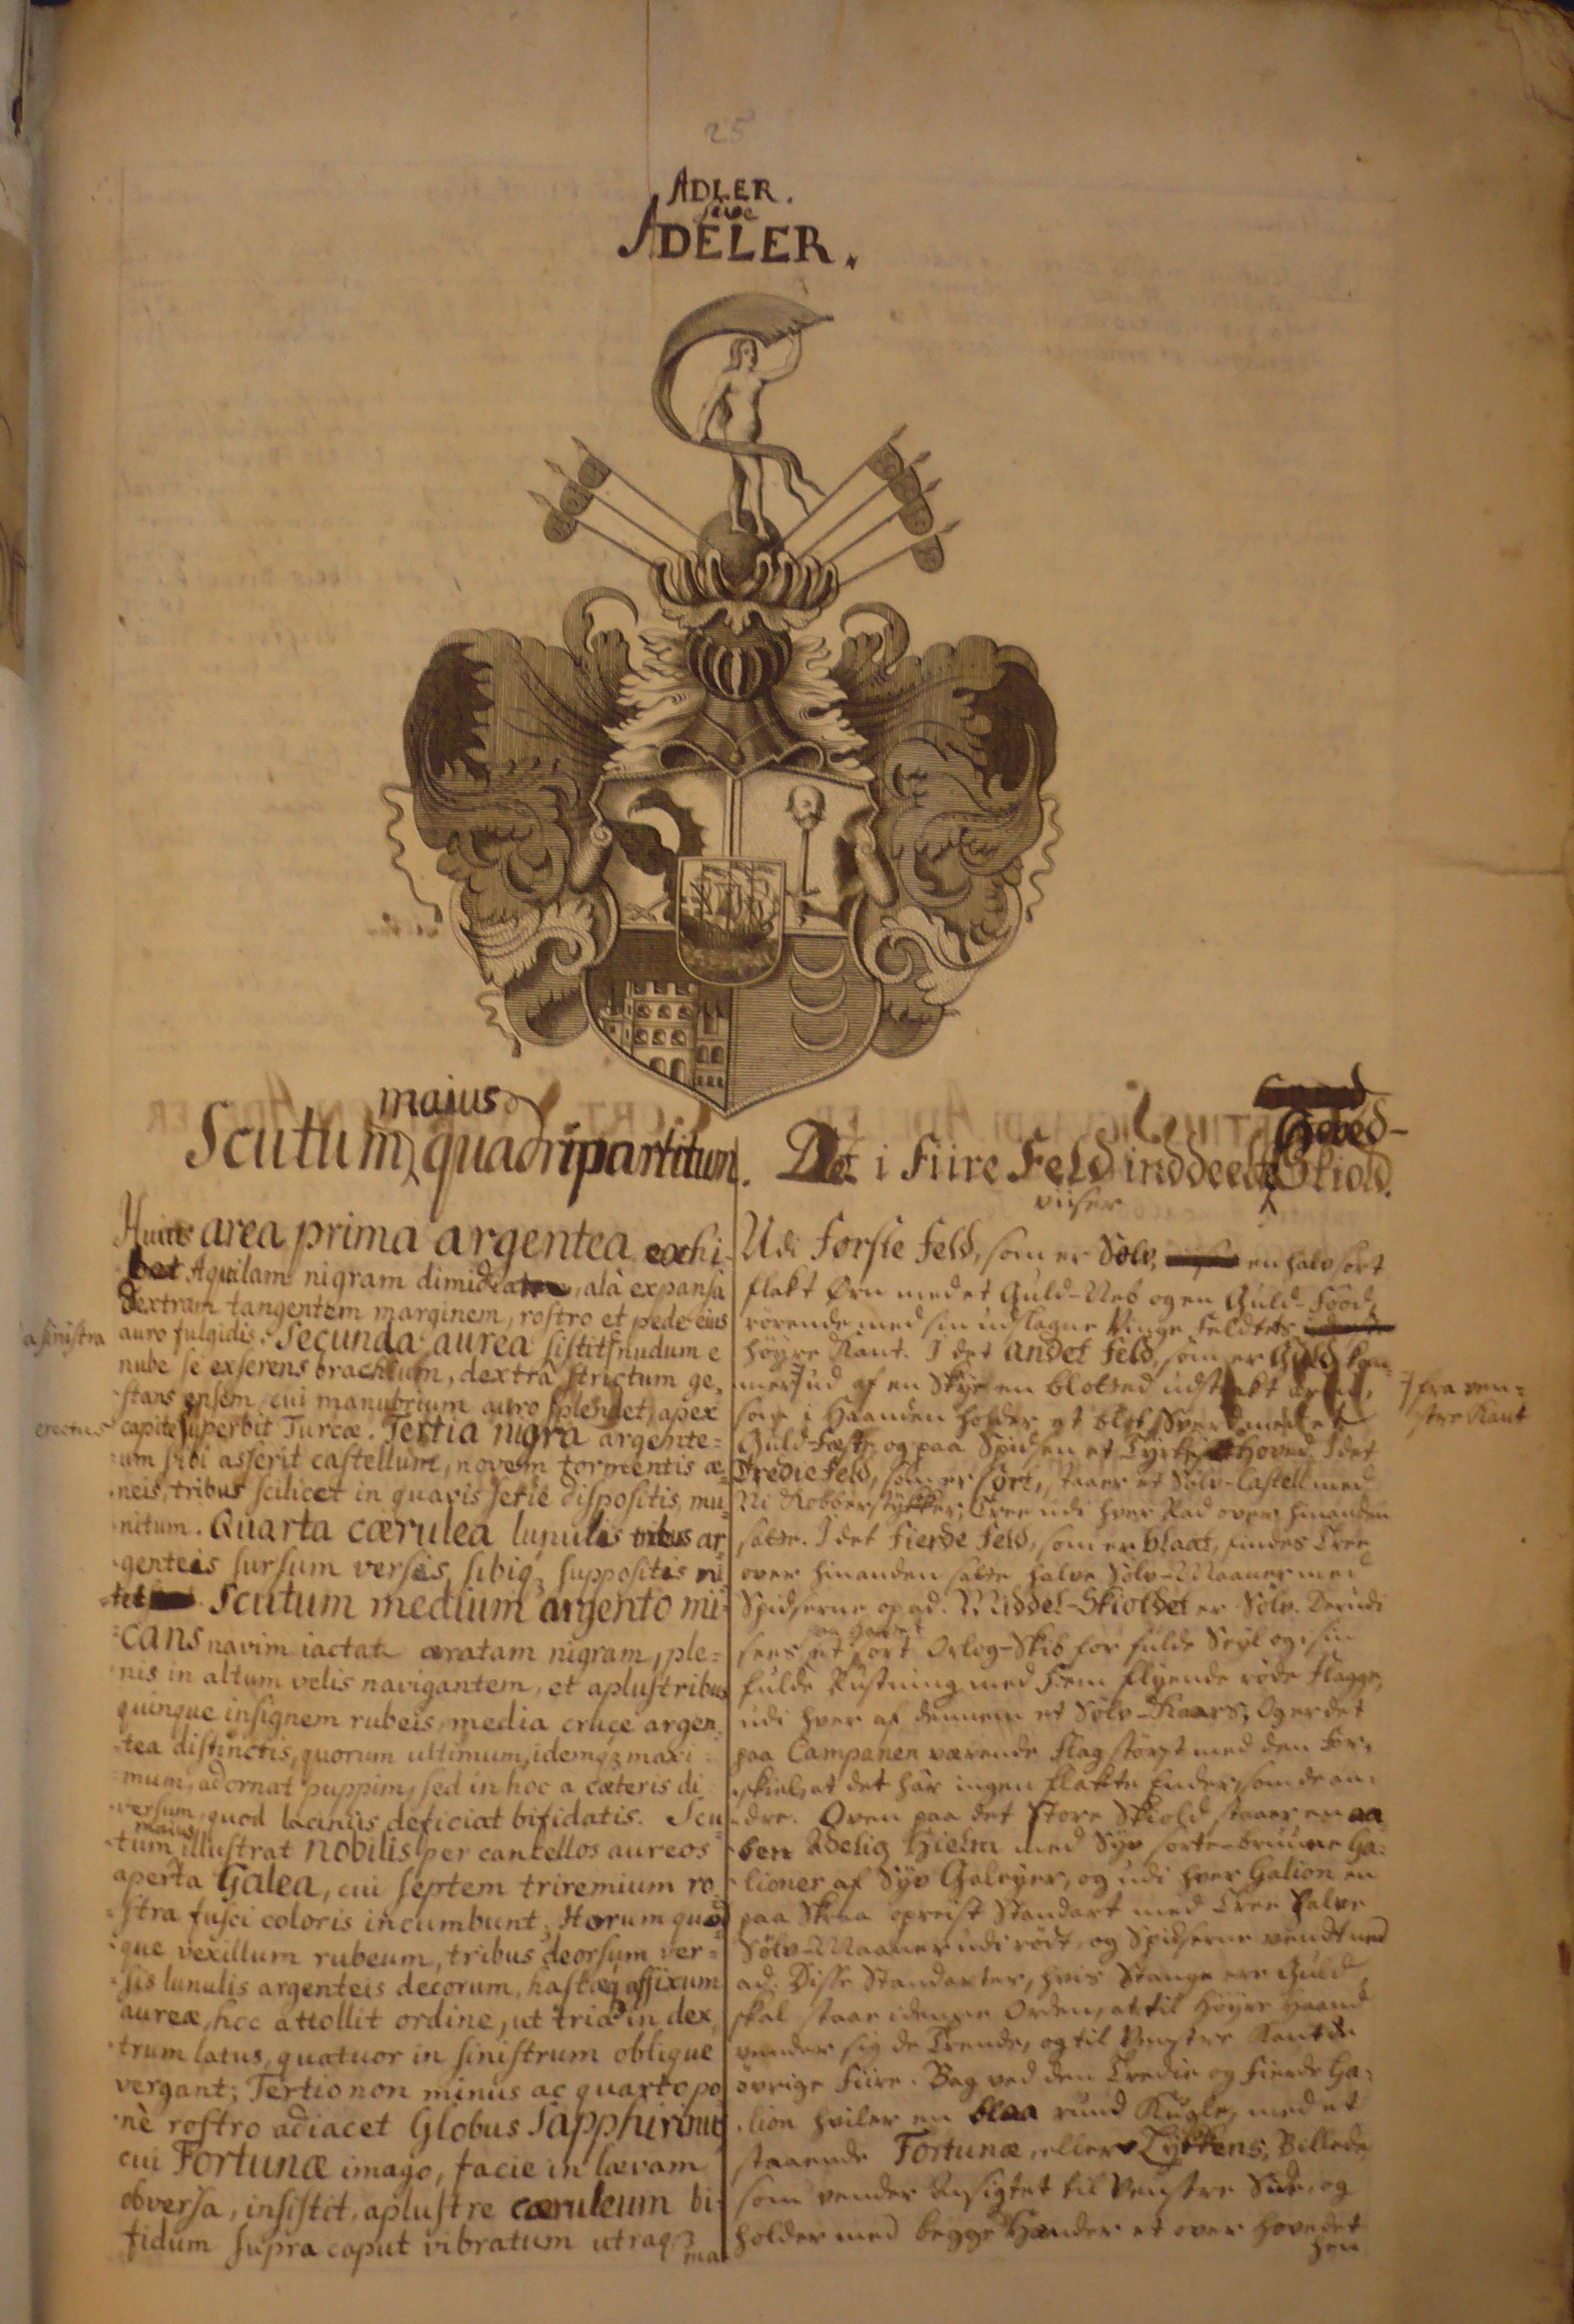 25
ADLER.
sive
ADELER.
maius
Scutum quadripartitum.
Huius area prima argentea exhi-
bet Aquilam nigram dimidiatam, alâ expansâ
dextram tangentem marginem, rostro et pede eius
a sinistra
auro fulgidis. Secunda aurea sistit nudum e
nube se exserens brachium, dextrâ strictum ge-
stans ensem, cui manubrium auro splendet, apex
erectus
capite superbit Turcæ. Tertia nigra argente-
um sibi asserit castellum, novem tormentis æ-
neis, tribus scilicet in quavis serie dispositis, mu-
nitum. Quarta cærulea lunulis tribus ar-
genteis sursum versis, sibiq; suppositis ni-
tet. Scutum medium argento mi-
cans navim iactat æratam nigram, ple-
nis in altum velis navigantem, et aplustribus
quinque insignem rubeis, media cruce argen-
tea distinctis, quorum ultimum, idemq; maxi-
mum, adornat puppim, sed in hoc a cæteris di-
versum, quod laciniis deficiat bifidatis. Scu-
maius
tum illustrat nobilis per cantellos aureos
aperta Galea, cui septem triremium ro-
stra fusci coloris incumbunt; Horum quod-
que vexillum rubeum, tribus deorsum ver-
sis lunulis argenteis decorum, hastæq; affixum
aureæ, hoc attollit ordine, ut tria in dex-
trum latus, quatuor in sinistrum oblique
vergant; Tertio non minus ac quarto po-
nè rostro adiacet Globus Sapphirinus
cui Fortunæ imago, facie in lævam
obversa, insistit, aplustre cæruleum bi-
fidum supra caput vibratum utraq;
ma-
Hoved-
Det i Fiire Feld inddeelte Skiold.
viiser
Udi Første Feld, som er Sølv, en halv sort
flakt Ørn med et Guld-Neb og en Guld-Food,
rørende med sin udslagne Vinge Feldtets
høyre Kant. I det Andet Feld, som er Guld kom-
mer ud af en Skye en blotted udstrakt Arm,
fra ven-
stre Kant
som i Haanden holder et blot Sverd med et
Guld-Fæste og paa Spidsen et Tyrke Hoved. I det
Tredie Feld, som er sort, staaer et Sølv-Castell med
Ni Kobberstykker, Tree udi hver Rad over hinanden
satte. I det Fierde Feld, som er blaat, findes Tree
over hinanden satte halve Sølv-Maaner med
Spidserne op ad. Middel-Skioldet er Sølv. Derudi
sees et sort Orlog-Skib for fulde Seyl og i sin
fulde Rustning med Fem flyende røde Flagge,
udi hver af dennem et Sølv-Kaars; Og er det
paa Campanen værende Flag størst med den For-
skiel, at det har ingen flakte Ender som de an-
dre. Oven paa det store Skiold staaer en aa-
ben Adelig Hielm med Syv sorte-bruune Ga-
lioner af Syv Galeyer, og udi hver Galion en
paa Skraa opreist Standart med Tree halve
Sølv-Maaner udi rødt, og Spidserne vendt ned
ad. Disse Standarter, hvis Stange ere Guld,
skal staae i denne Orden, at til Høyre Haand
vender sig de Trende, og til Venstre Kant de
øvrige Fiire. Bag ved den Tredie og Fierde Ga-
lion hviler en blaa rund Kugle, med et
staaende Fortunæ, eller Lykkens, Billede
som vender Ansigtet til Venstre Side, og
holder med begge Hænder et over hovedet
hen